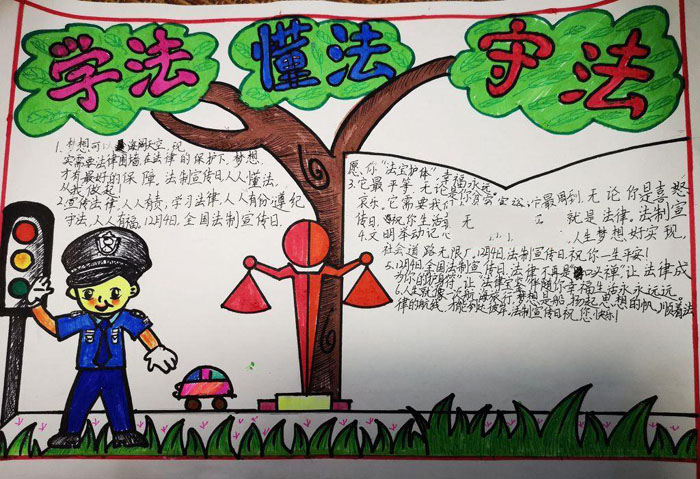 学法 懂法 守法
1.梦想可以海阔天空,现
实需要法律围墙,在法律的保护下,梦想
才有最好的保障,法制宣传日人人懂法,
从我做起!
2.宣传法律,人人有责,学习法律,人人有份,遵纪
守法,人人有福,12月4日,全国法制宣传日。
愿,你“法宝护体”幸福永远。
3.它最平等,无论是
它最周到,无论你是喜怒
哀乐,它需要你
无
就是法律,法制宣
传日,祝你生活幸
4.文明举动记心
人生梦想,好实现,
社会道路无限广,12月4日,法制宣传日,祝你一生平安!
5.12月4日,全国法制宣传日,法律不再是“口头禅”让法律成
为你的护身符”,让法律宝宝伴随你幸福生活永永远远。
6.人生就像
海旅行,梦想是船,扬起思想的帆,顺着法
律的航线,
法制宣传日,祝您快乐!